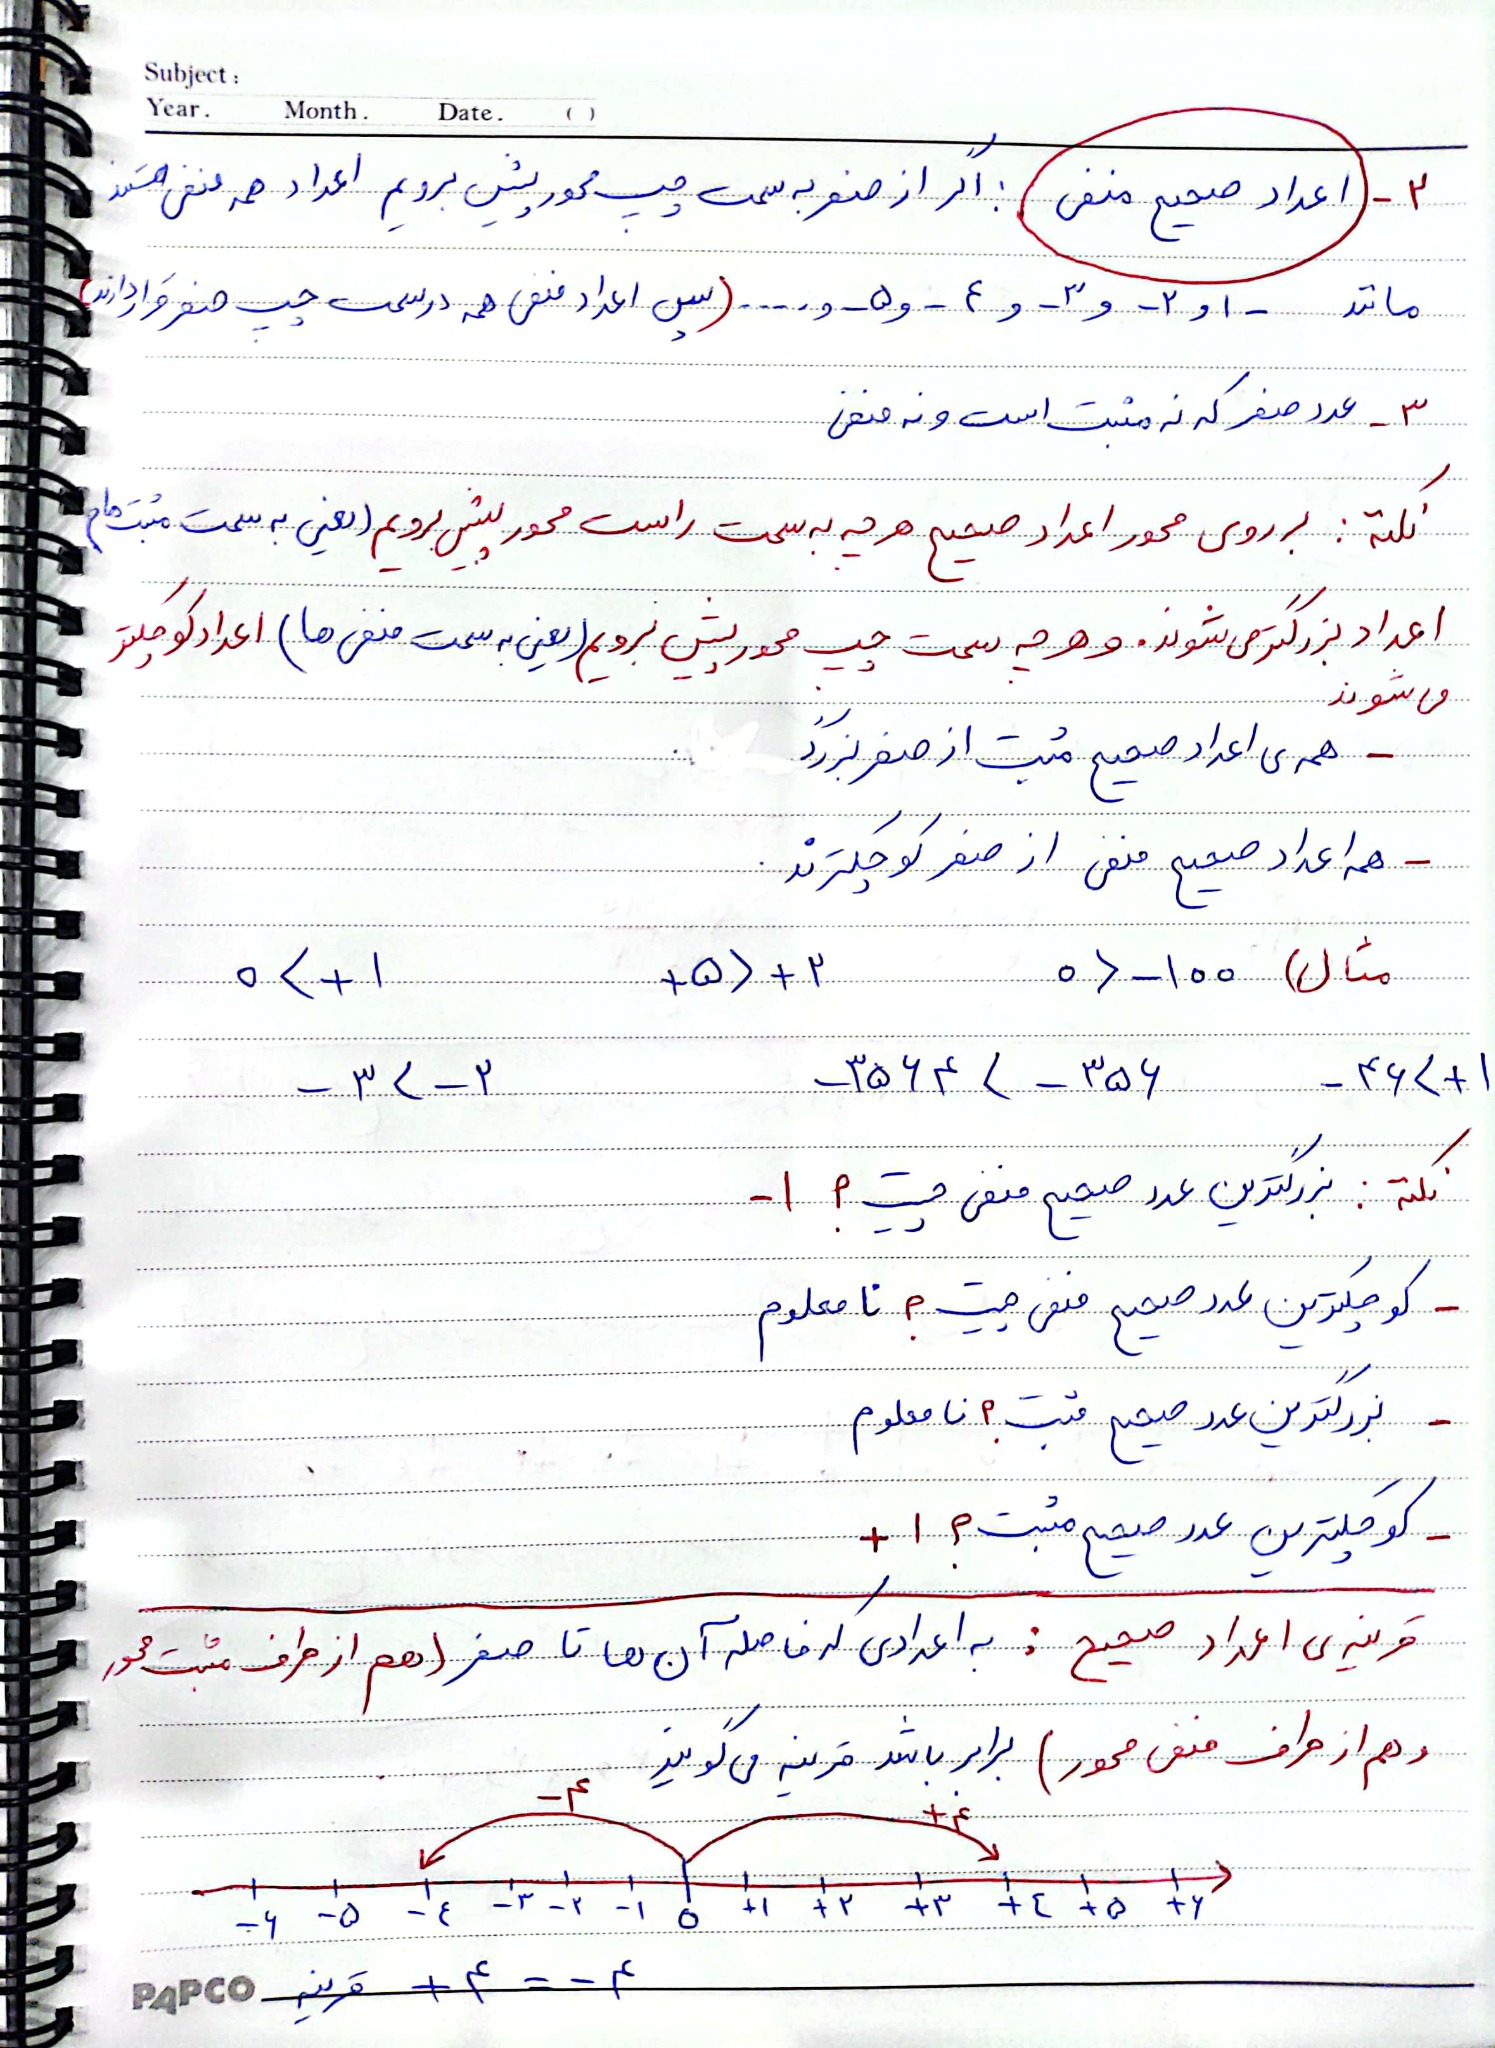 Subject :
Year . Month . Date . ( )
۲- اعداد صحیح منفی : اگر از صفر به سمت چپ محور پیش برویم اعداد همه منفی هستند
مانند -۱ و ۲- و ۳- و ۴- و ۵- و ..... (پس اعداد منفی همه در سمت چپ صفر قرار دارند)
۳- عدد صفر که نه مثبت است و نه منفی
نکته : بر روی محور اعداد صحیح هر چه به سمت راست محور پیش برویم (یعنی به سمت مثبت ها)
اعداد بزرگتر می شوند. و هر چه سمت چپ محور پیش برویم (یعنی به سمت منفی ها) اعداد کوچکتر
می شوند
- همه ی اعداد صحیح مثبت از صفر بزرگ
- همه اعداد صحیح منفی از صفر کوچکترند.
مثال) ۰ > -۱۰۰ +۵ > +۲ ۰ < +۱
-۴۶ < +۱ -۳۵۶۴ < -۳۵۶ -۳ < -۲
نکته : بزرگترین عدد صحیح منفی چیست ؟ ۱-
- کوچکترین عدد صحیح منفی چیست ؟ نا معلوم
- بزرگترین عدد صحیح مثبت ؟ نا معلوم
- کوچکترین عدد صحیح مثبت ؟ ۱ +
قرینه ی اعداد صحیح : به اعدادی که فاصله آن ها تا صفر (هم از طرف مثبت محور
و هم از طرف منفی محور) برابر باشد قرینه می گویند
-۴ +۴
-۶ -۵ -۴ -۳ -۲ -۱ ۰ +۱ +۲ +۳ +۴ +۵ +۶
PAPCO قرینه +۴ = -۴